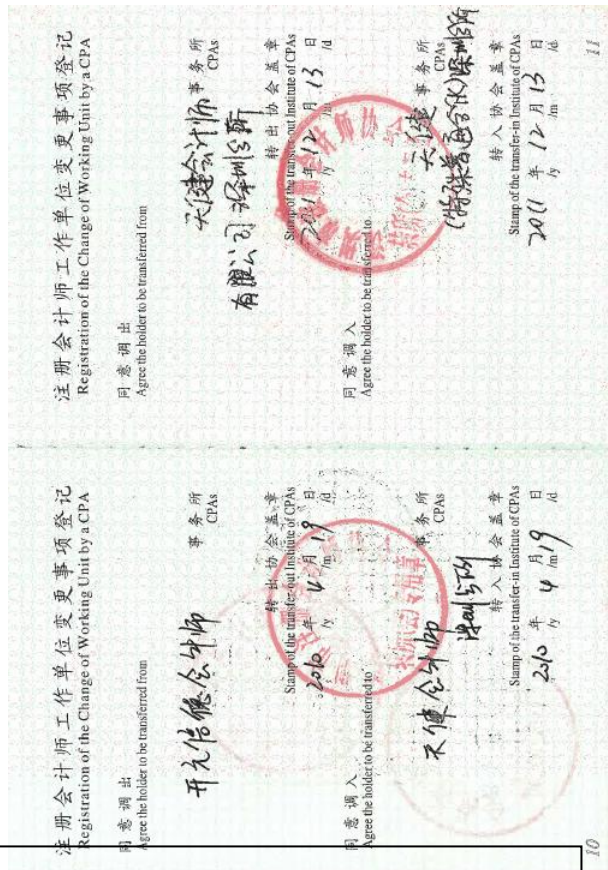 注册会计师工作单位变更事项登记
Registration of the Change of Working Unit by a CPA
同意调出
Agree the holder to be transferred from
开元信德会计师
事务所
CPAs
转出协会盖章
Stamp of the transfer-out Institute of CPAs
2010年4月19日
/y /m /d
同意调入
Agree the holder to be transferred to
天健会计师
事务所
CPAs
深圳分所
转入协会盖章
Stamp of the transfer-in Institute of CPAs
2010年4月19日
/y /m /d
10
注册会计师工作单位变更事项登记
Registration of the Change of Working Unit by a CPA
同意调出
Agree the holder to be transferred from
天健会计师事务所
CPAs
有限公司深圳分所
转出协会盖章
Stamp of the transfer-out Institute of CPAs
2011年12月13日
/y /m /d
同意调入
Agree the holder to be transferred to
天健
事务所
CPAs
(特殊普通合伙)深圳分所
转入协会盖章
Stamp of the transfer-in Institute of CPAs
2011年12月13日
/y /m /d
11